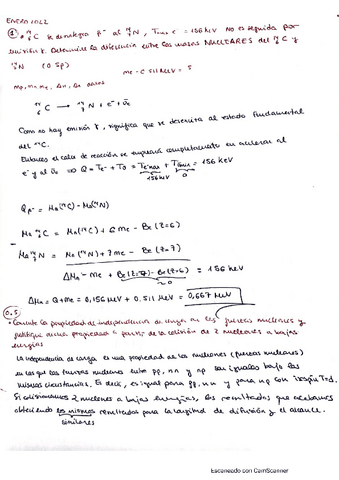 ENERO 2022
① · ¹⁴₆C se desintegra β⁻ al ¹⁴₇N, Tmáx e = 156 keV No es seguida por
emisión γ. Determine la diferencia entre las masas NUCLEARES del ¹⁴₆C y
¹⁴₇N (0.5p)
¹⁴₆C → ¹⁴₇N + e⁻ + ν̄e
Como no hay emisión γ, significa que se desexcita al estado fundamental
del ¹⁴C.
Entonces el calor de reacción se empleará completamente en acelerar al
e⁻ y al ν̄e ⇒ Q = Te⁻ + Tν̄ = Te⁻máx + Tν̄mín = 156 keV
156 keV 0
Qβ⁻ = Ma(¹⁴C) - Ma(¹⁴N)
Ma ¹⁴₆C = Mn(¹⁴C) + 6me - Be(Z=6)
Ma ¹⁴₇N = Mn(¹⁴N) + 7me - Be(Z=7)
ΔMn - me + Be(Z=7) - Be(Z=6) = 156 keV
≈0
ΔMn = Q + me = 0,156 MeV + 0,511 MeV = 0,667 MeV
0.5
· Comente la propiedad de independencia de carga de las fuerzas nucleares y
justifique dicha propiedad a partir de la colisión de 2 nucleones a bajas
energías
La independencia de carga es una propiedad de los nucleones (fuerzas nucleares)
en las que las fuerzas nucleares entre pp, nn y np son iguales bajo las
mismas circunstancias. Es decir, es igual para pp, nn y para np con
Si colisionamos 2 nucleones a bajas energías, los resultados que acabamos
obteniendo los mismos resultados para la longitud de difusión y el alcance.
similares
Escaneado con CamScanner